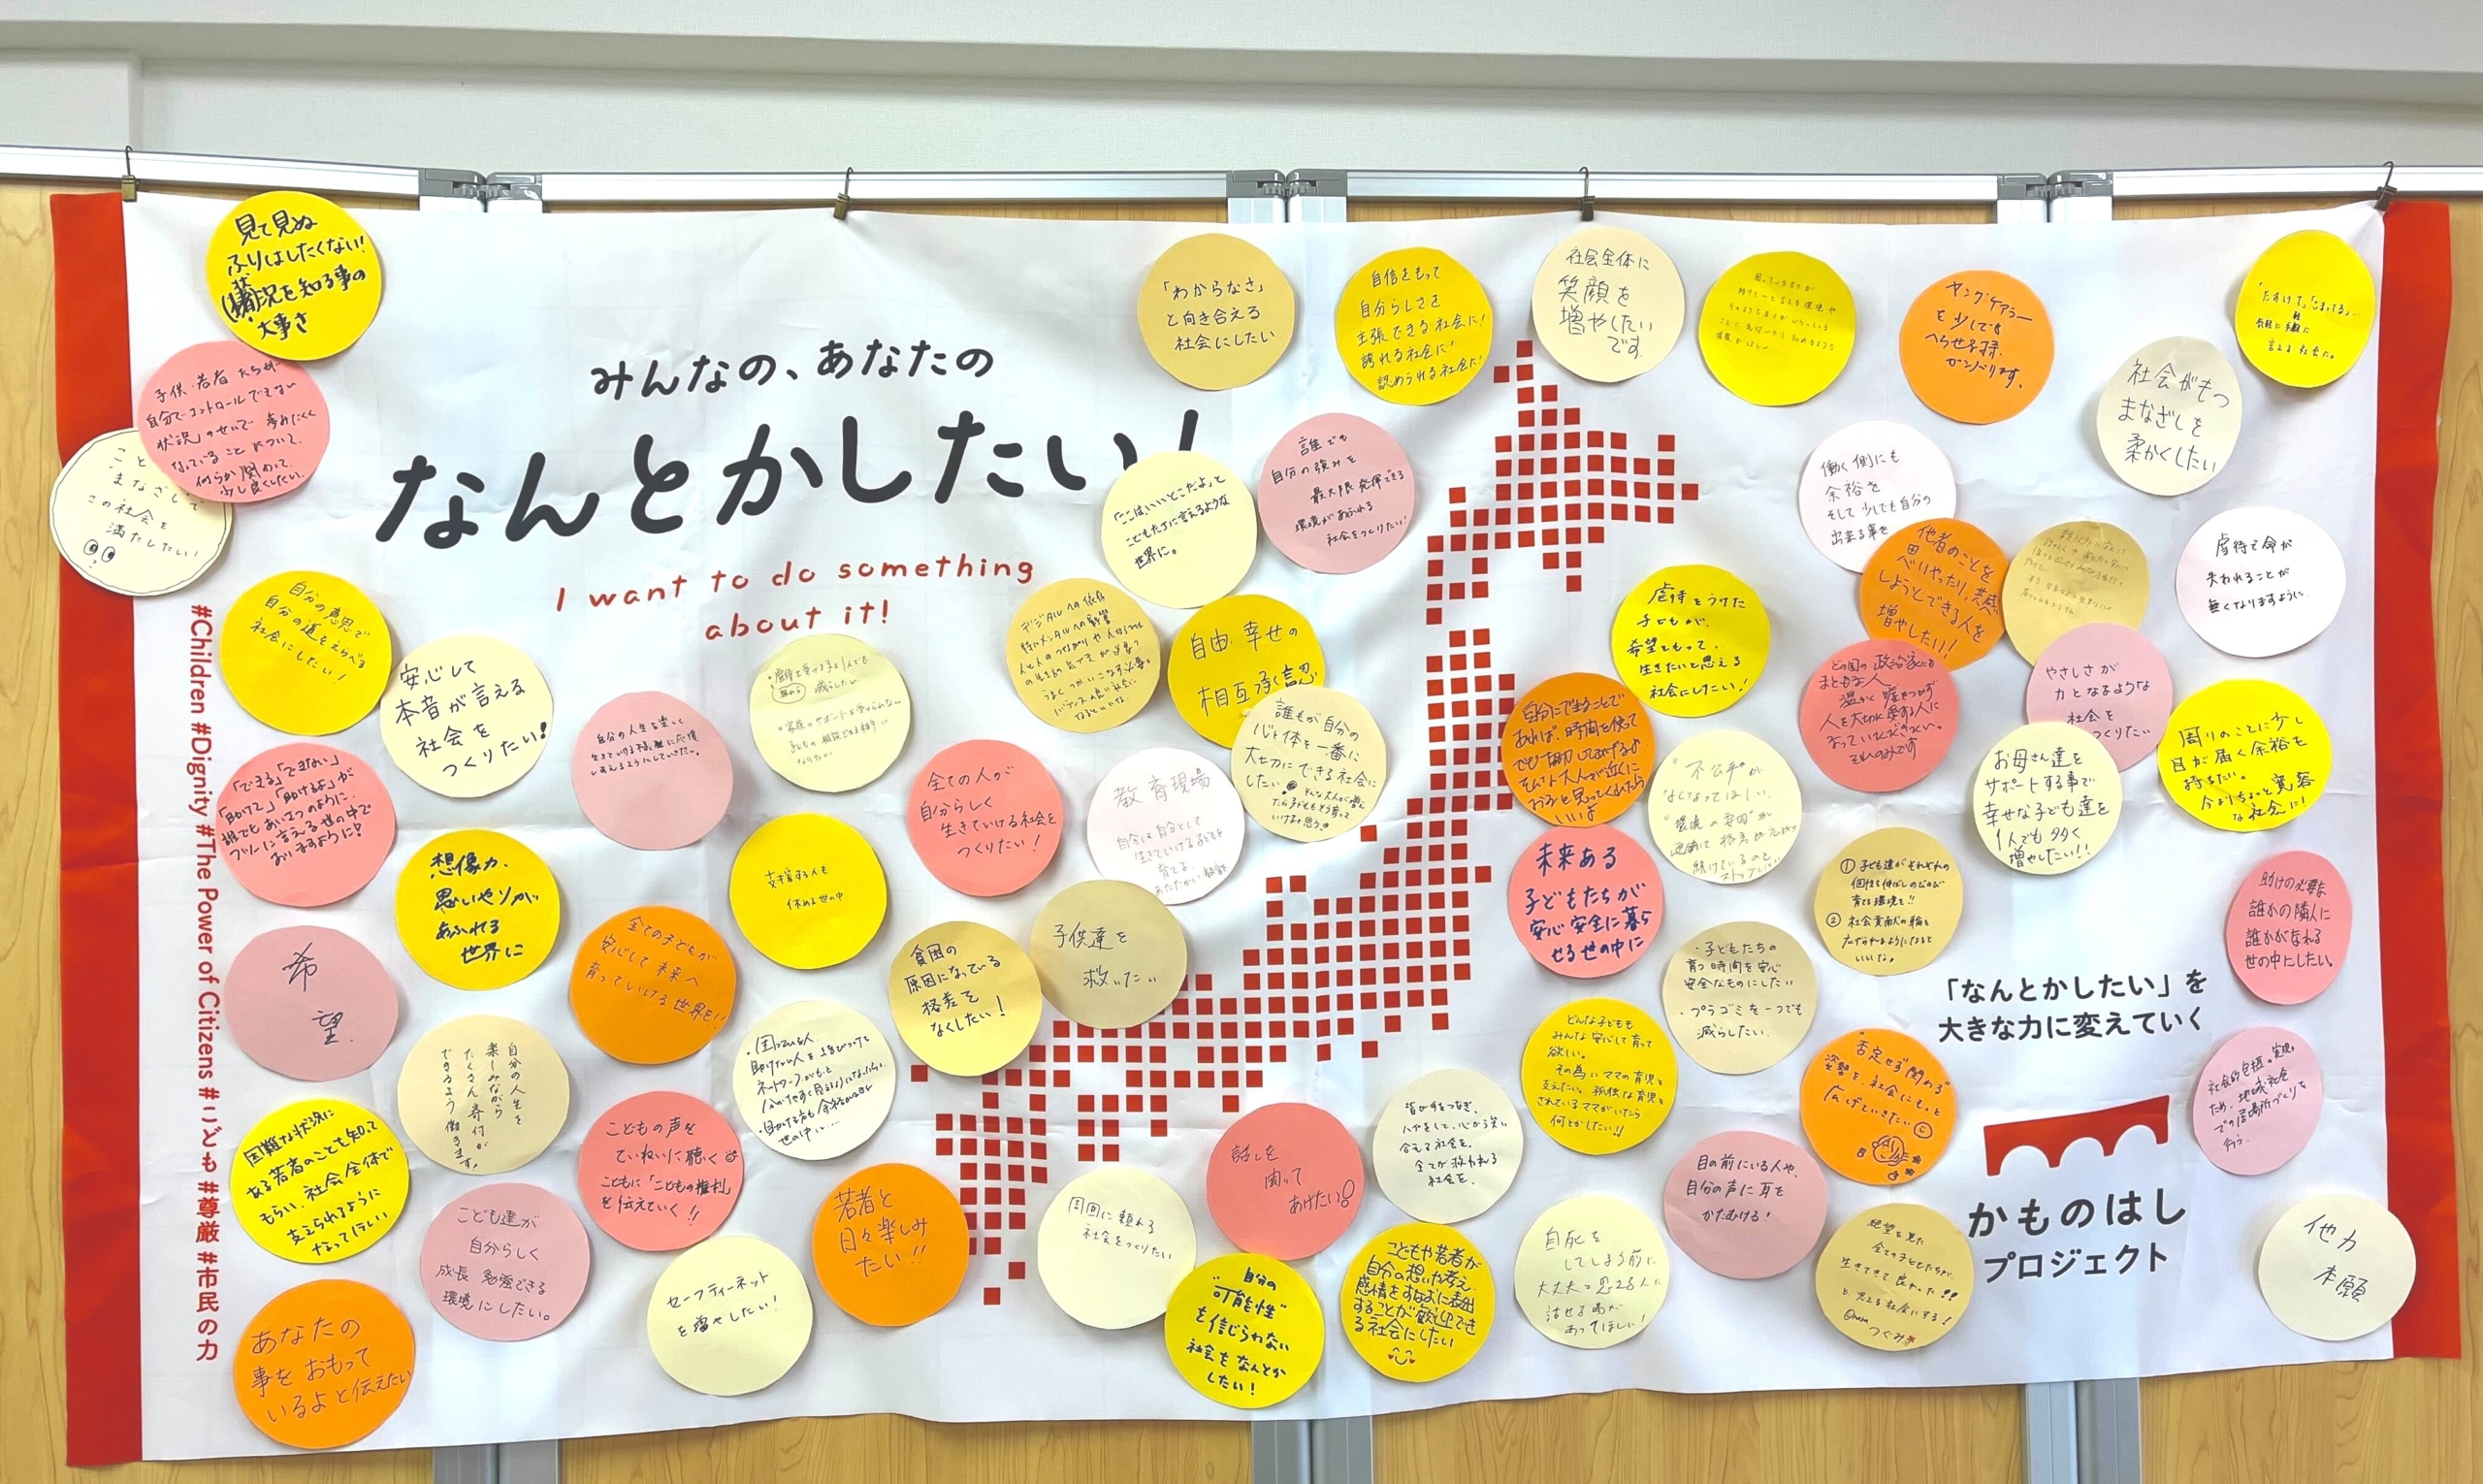 見て見ぬ
ふりはしたくない!
状況を知る事の
大事さ
子供・若者たちが
自分でコントロールできない
状況」のせいで
なっていることについて、
何らか関わって
少し良くしたい。
まなざしで
この社会を
満たしたい!
みんなの、あなたの
なんとかしたい!
I want to do something
about it!
#Children #Dignity #The Power of Citizens #こども #尊厳 #市民の力
「わからなさ」
と向き合える
社会にしたい
自信をもって
自分らしさを
主張できる社会に!
誇れる社会に!
認められる社会に!
社会全体に
笑顔を
増やしたい
です。
ヤングケアラー
を少しでも
へらせる様、
ガンバります。
「たすけて」「こまってる」
気軽に
言える社会に。
社会がもつ
まなざしを
柔かくしたい
「ここは、いいとこだよ」と
こどもたちに言えるような
世界に。
誰でも
自分の強みを
最大限発揮できる
環境があふれる
社会をつくりたい!
働く側にも
余裕を
そして少しでも自分の
出来る事を
他者のことを
思いやったり、共感
しようとできる人を
増やしたい!
虐待で命が
失われることが
無くなりますように
自分の意思で
自分の道をえらべる
社会にしたい!
安心して
本音が言える
社会を
つくりたい!
自分の人生を楽しく
デジタルへの依存
自由・幸せの
相互承認
誰もが自分の
心と体を一番に
大切にできる社会に
したい
虐待をうけた
子どもが、
希望をもって、
生きたいと思える
社会にしたい!
自分にできることで
あれば、時間を使って
どの国の政治家にも
まともな人
温かく嘘をつかず
人を大切に愛する人に
なっていただきたい。
それのみです
やさしさが
力となるような
社会を
つくりたい
周りのことに少し
目が届く余裕を
持ちたい。
今よりちょっと寛容
な社会に!
お母さん達を
サポートする事で
幸せな子ども達を
1人でも多く
増やしたい!!
「できる」「できない」
「助けて」「助けるよ」が
誰でもあいさつのように、
フツーに言える世の中で
ありますように!
想像力・
思いやりが
あふれる
世界に
支援する人も
休める世の中
全ての人が
自分らしく
生きていける社会を
つくりたい!
教育現場
自分は自分として
生きていける子どもを
育てる
あたたかい
"不公平"が
なくなってほしい。
未来ある
子どもたちが
安心安全に暮ら
せる世の中に
① 子ども達がそれぞれの
個性を伸ばしのびのび
育てる環境を!!
② 社会貢献の輪を
広げられるようになると
いいな。
助けの必要な
誰かの隣人に
誰かがなれる
世の中にしたい。
希
望
全ての子どもが
安心して未来へ
育っていける世界を!!
貧困の
原因になっている
格差を
なくしたい!
子供達を
救いたい
・子どもたちの
育つ時間を安心
安全なものにしたい
・プラゴミを一つでも
減らしたい。
「なんとかしたい」を
大きな力に変えていく
自分の人生を
楽しみながら
たくさん寄付が
できるよう働きます。
・困っている人、
助けたい人を結びつける
ネットワークがもっと
どんな子どもも
みんな安心して育って
欲しい。
その為にママの育児を
支えたい。孤独な育児を
されているママがいたら
何とかしたい!!
"否定せず関わる"
姿勢を、社会にもっと
広げていきたい
社会的包摂の実現の
ため、地域社会
での居場所づくりを
行う。
困難な状況に
ある若者のことを知って
もらい、社会全体で
支えられるように
なってほしい
こどもの声を
ていねいに聴く
こどもに「こどもの権利」
を伝えていく!!
若者と
日々楽しみ
たい!!
話しを
聞いて
あげたい!
皆が手をつなぎ、
ハグをして、心から笑い
合える社会を。
全てが救われる
社会を。
目の前にいる人や、
自分の声に耳を
かたむける!
かものはし
プロジェクト
こども達が
自分らしく
成長 勉強できる
環境にしたい。
周囲に頼れる
社会をつくりたい
自死を
してしまう前に
大丈夫と思える人に
話せる場が
あってほしい!
絶望を見た
全ての子どもたちが、
生きてきて良かった!!
と思える社会にする!
つぐみ
他力
本願
あなたの
事をおもって
いるよと伝えたい
セーフティーネット
を増やしたい!
自分の
"可能性"
を信じられない
社会をなんとか
したい!
こどもや若者が
自分の想いや考え、
感情をすなおに表出
することが歓迎でき
る社会にしたい